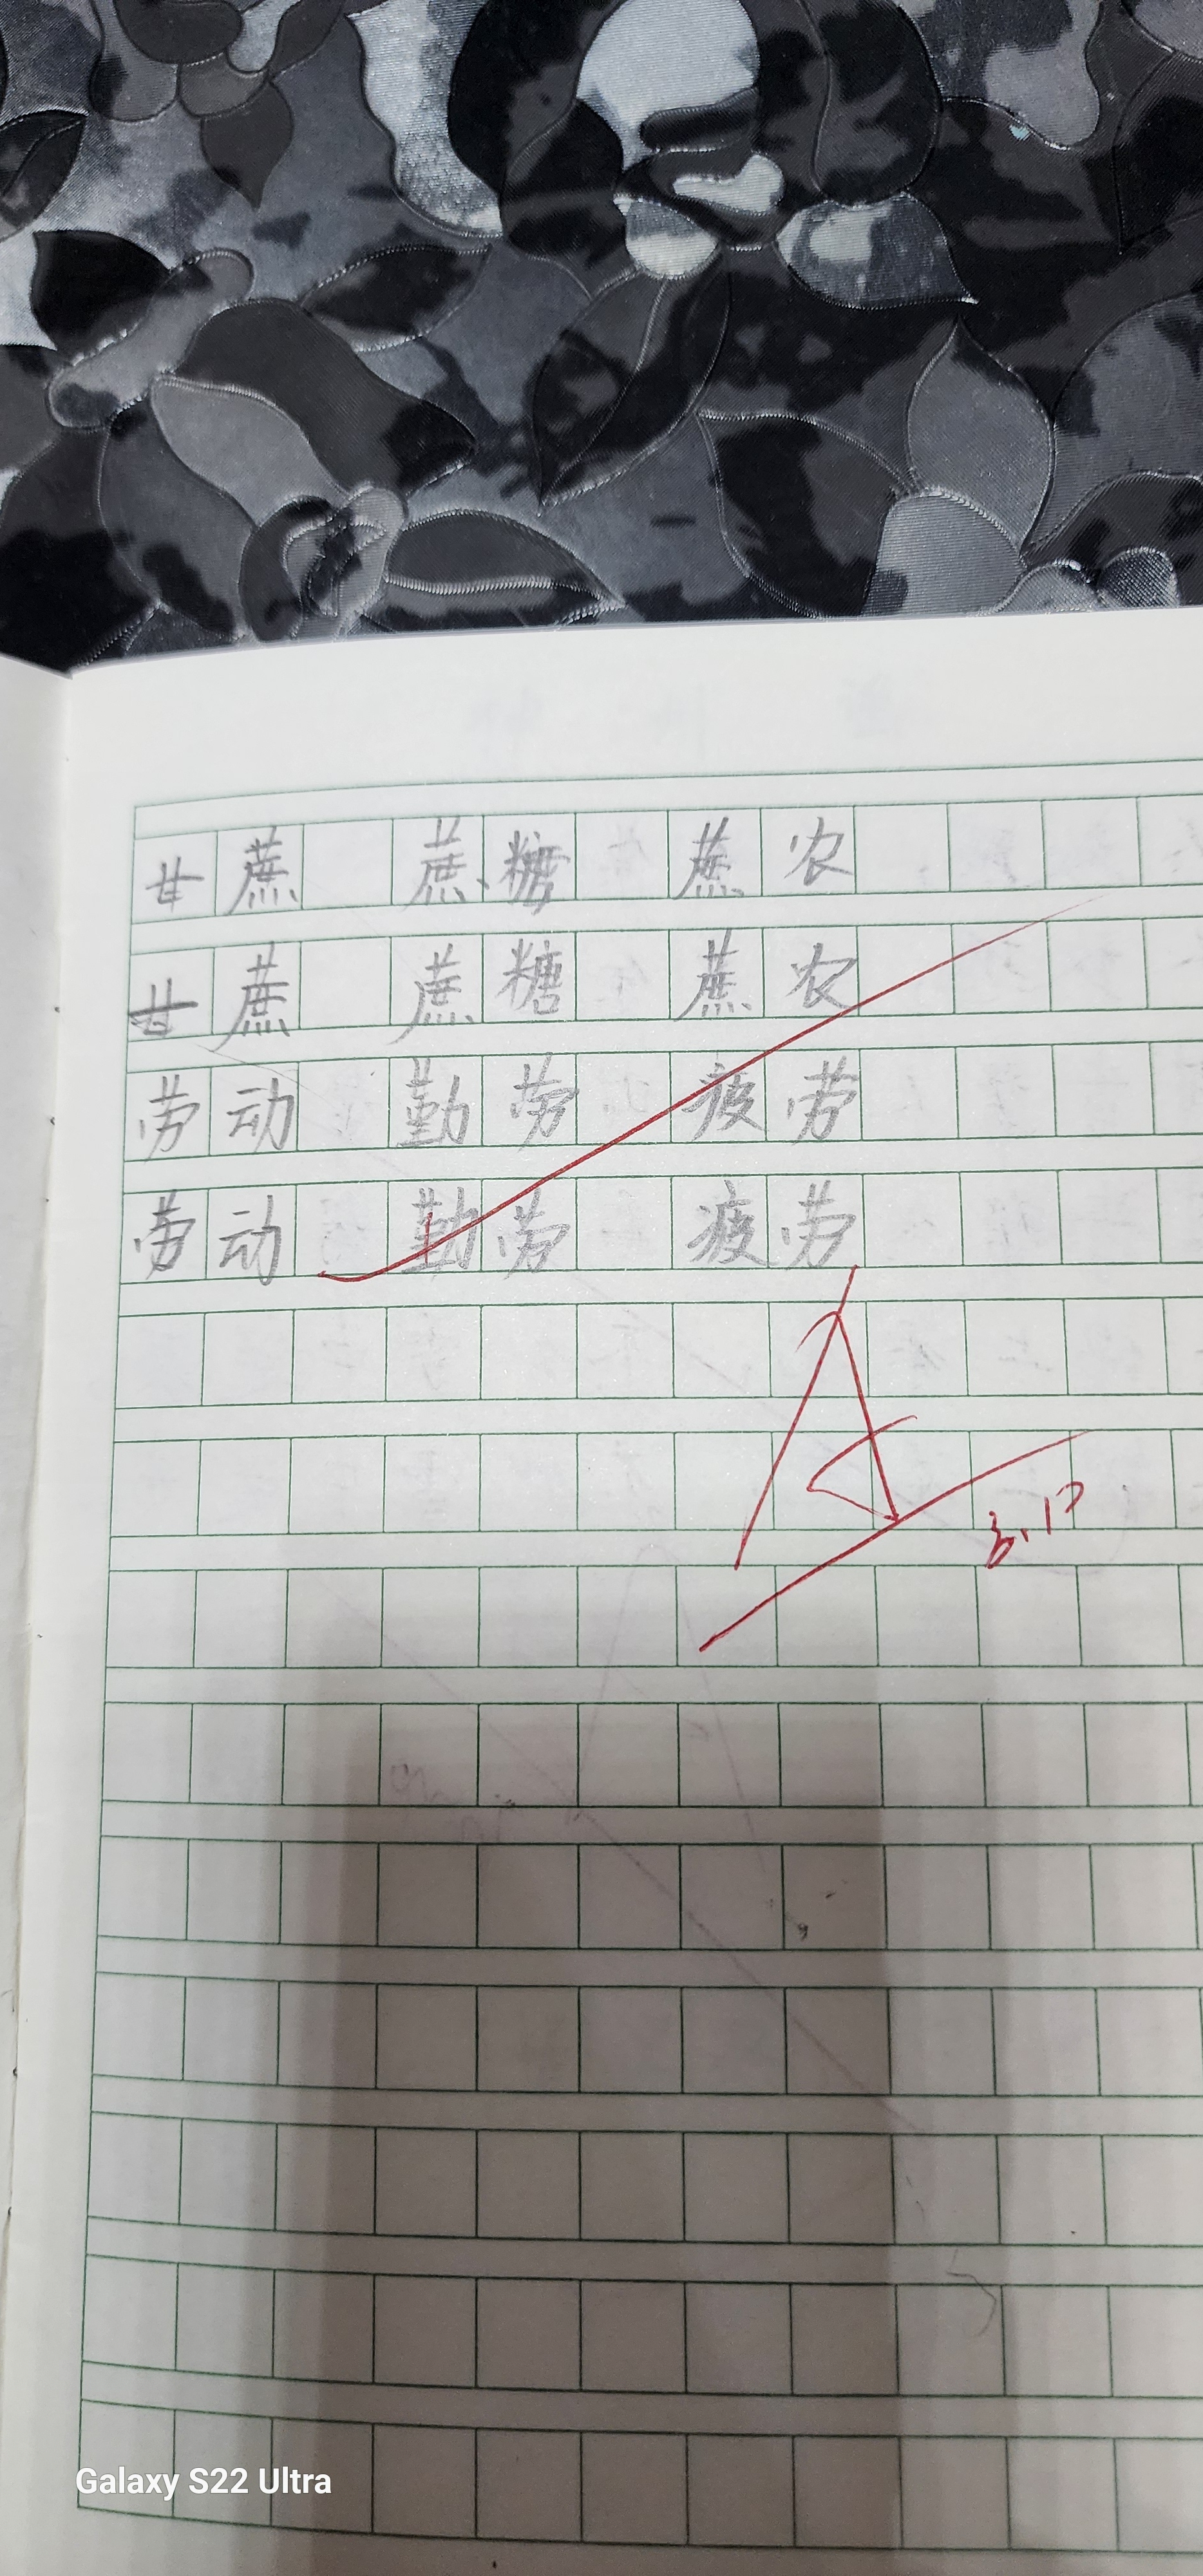 甘蔗 蔗糖 蔗农
甘蔗 蔗糖 蔗农
劳动 勤劳 疲劳
劳动 勤劳 疲劳
A
Galaxy S22 Ultra